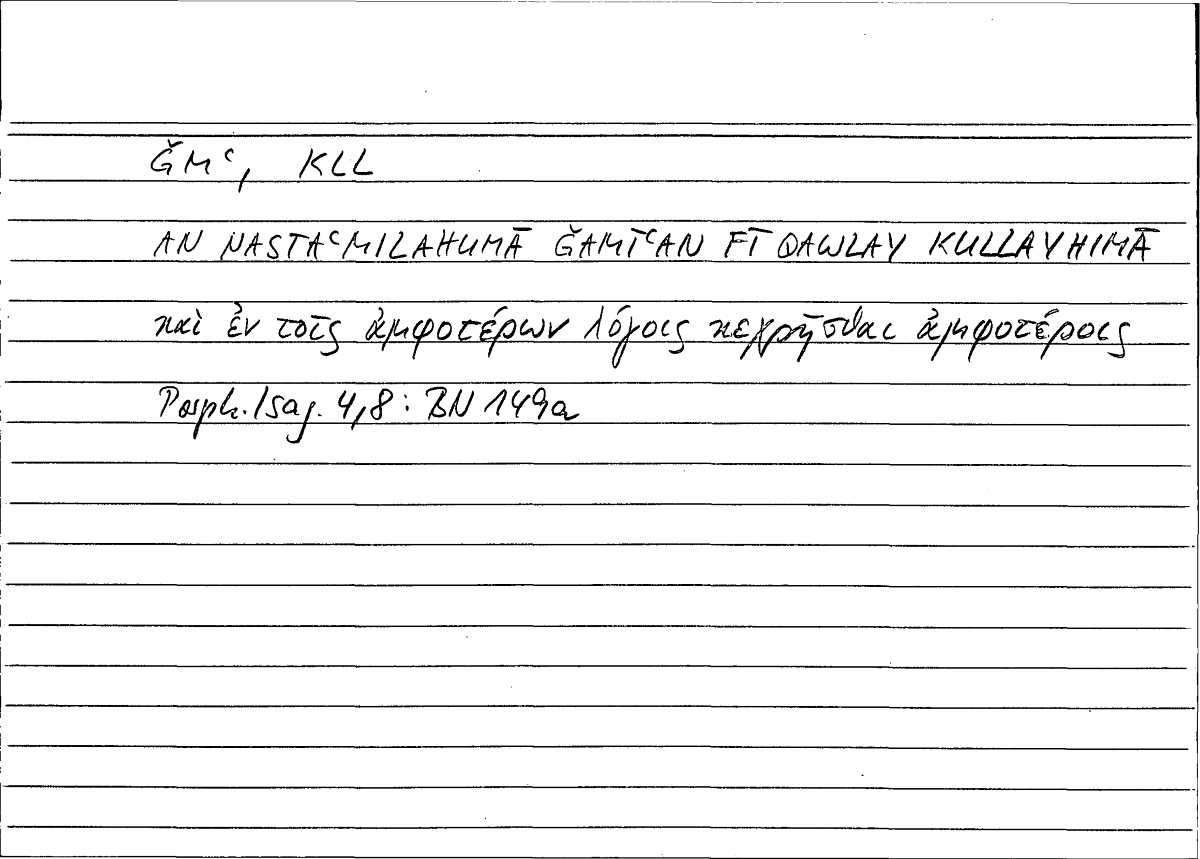 ǦMʿ, KLL
AN NASTAʿMILAHUMĀ ǦAMĪʿAN FĪ QAWLAY KULLAYHIMĀ
καὶ ἐν τοῖς ἀμφοτέρων λόγοις κεχρῆσθαι ἀμφοτέροις
Porph. Isag. 4,8: BN 149a